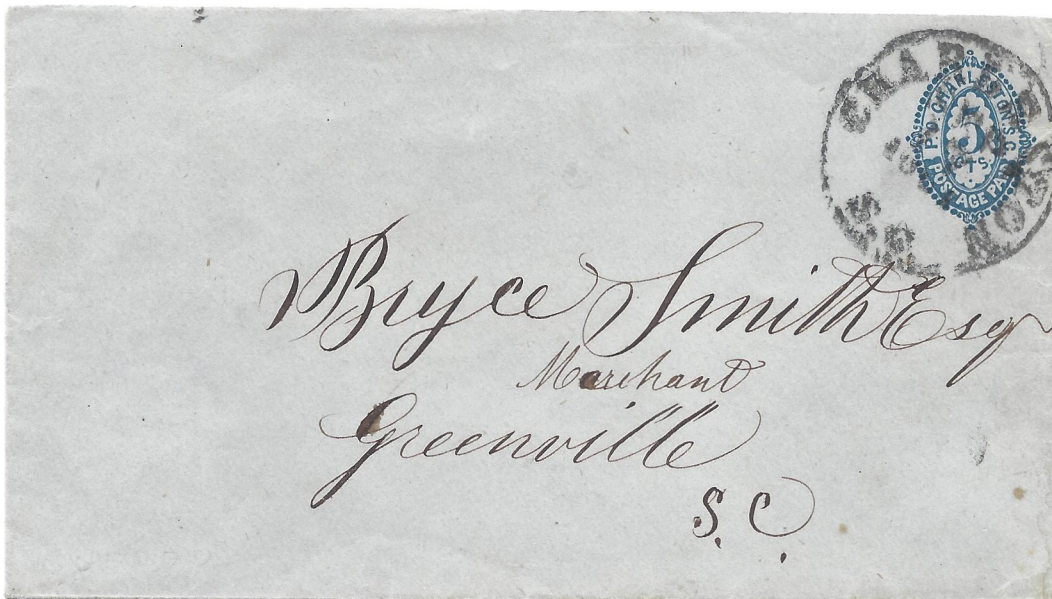 CHARLESTON
P.O. CHARLESTON. S.C.
5
CTS.
POSTAGE PAID
Bryce Smith Esq
Merchant
Greenville
S. C.